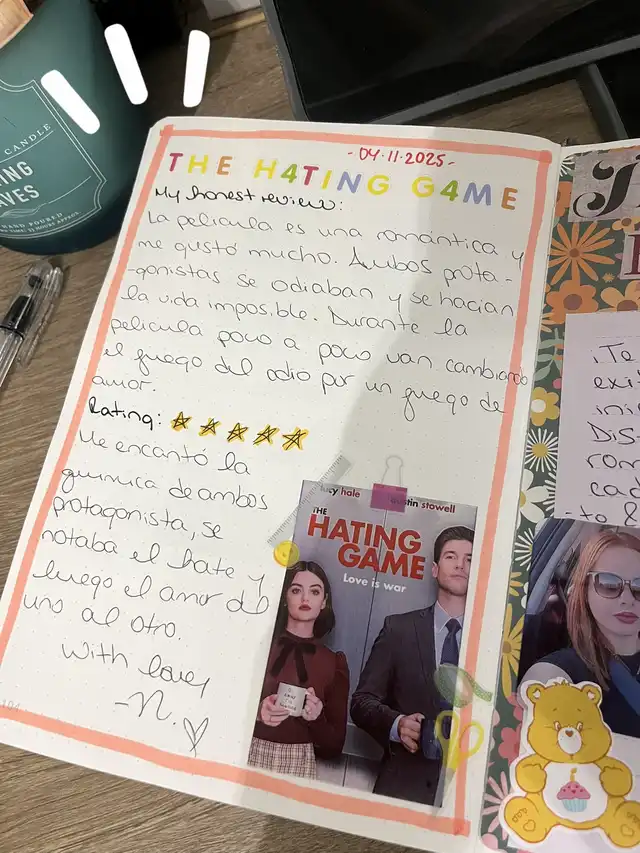 CANDLE
HAND POURED
- 04.11.2025 -
THE H4TING G4ME
My honest review:
La película es una romántica y
me gustó mucho. Ambos prota-
-gonistas se odiaban y se hacían
la vida imposible. Durante la
película poco a poco van cambiando
el juego del odio por un juego de
amor.
Rating:
Me encantó la
química de ambos
protagonista, se
notaba el hate y
luego el amor del
uno al otro.
With love,
-N.
lucy hale
austin stowell
THE
HATING
GAME
Love is war
¡Te
exi
ini
Dis
rom
cad